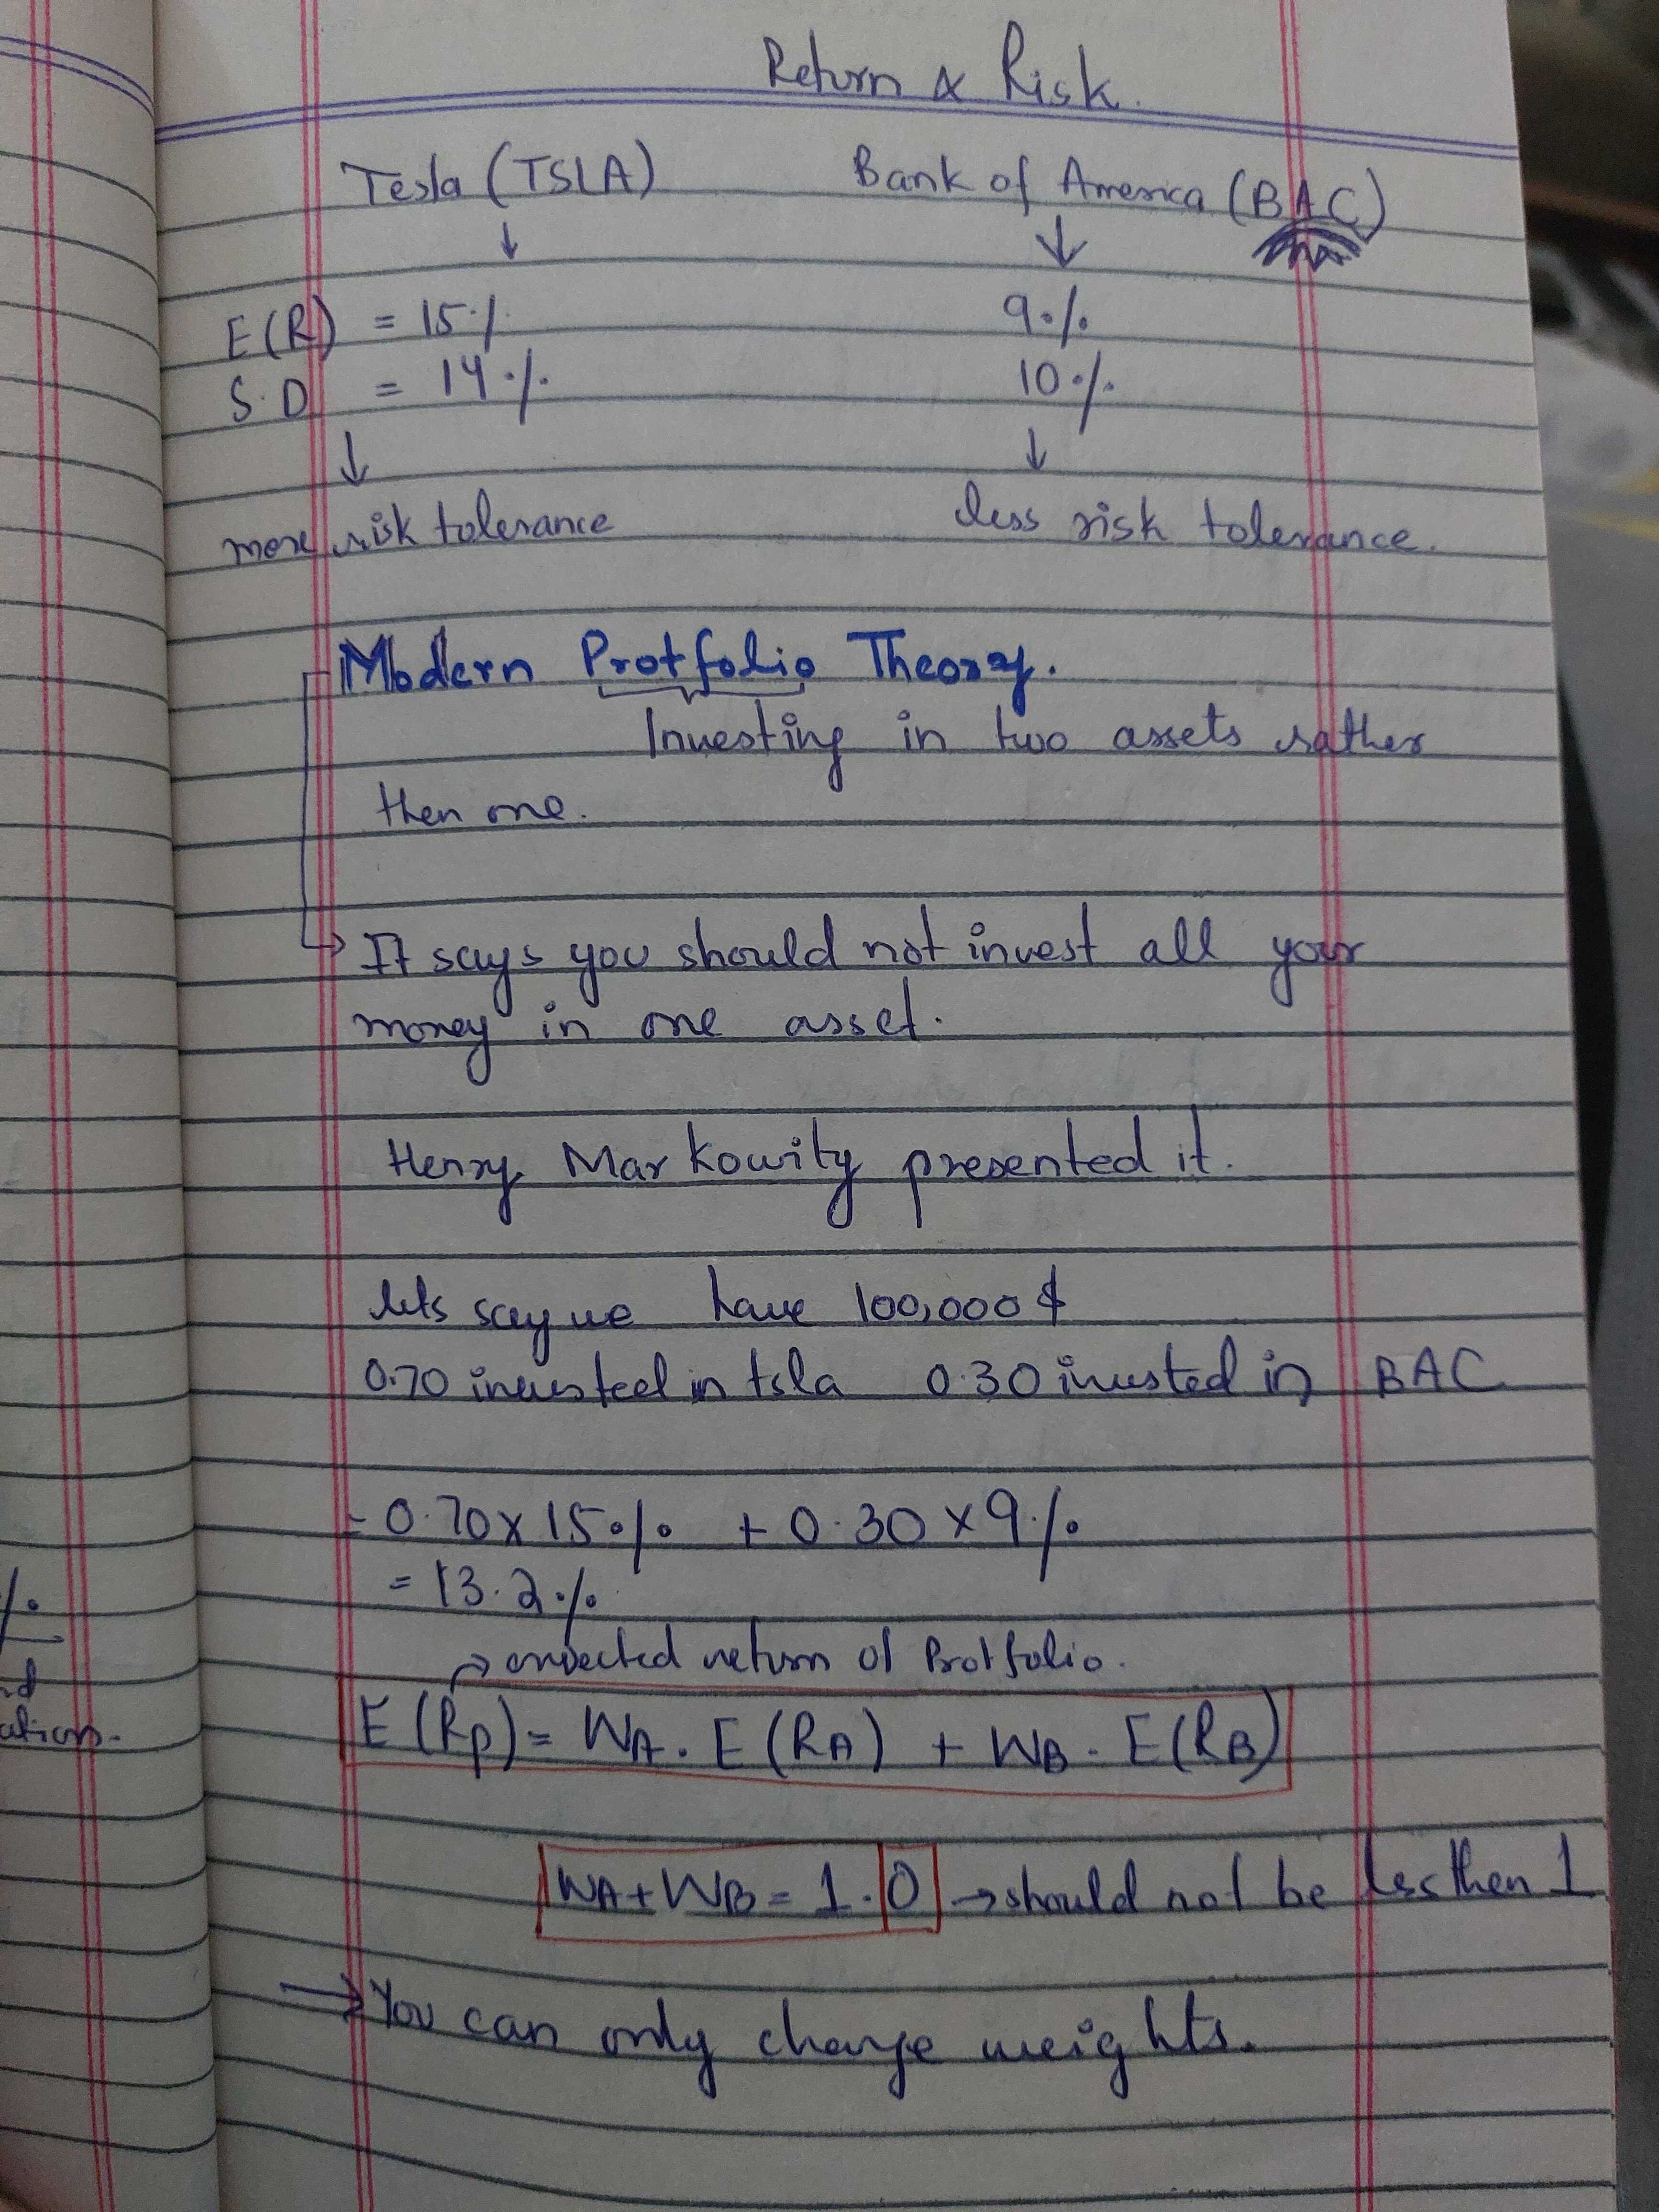 Return & Risk.
Tesla (TSLA) Bank of America (BAC)
E(R) = 15% 9%
S.D = 14% 10%
more risk tolerance less risk tolerance.
Modern Protfolio Theory.
Investing in two assets rather
then one.
It says you should not invest all your
money in one asset.
Henry Markowity presented it.
lets say we have 100,000 $
0.70 invested in tsla 0.30 invested in BAC
- 0.70 x 15% + 0.30 x 9%
= 13.2%
→ expected return of Protfolio.
E(Rp) = WA. E(RA) + WB. E(RB)
WA + WB = 1.0 → should not be less then 1
⇒ You can only change weights.
%